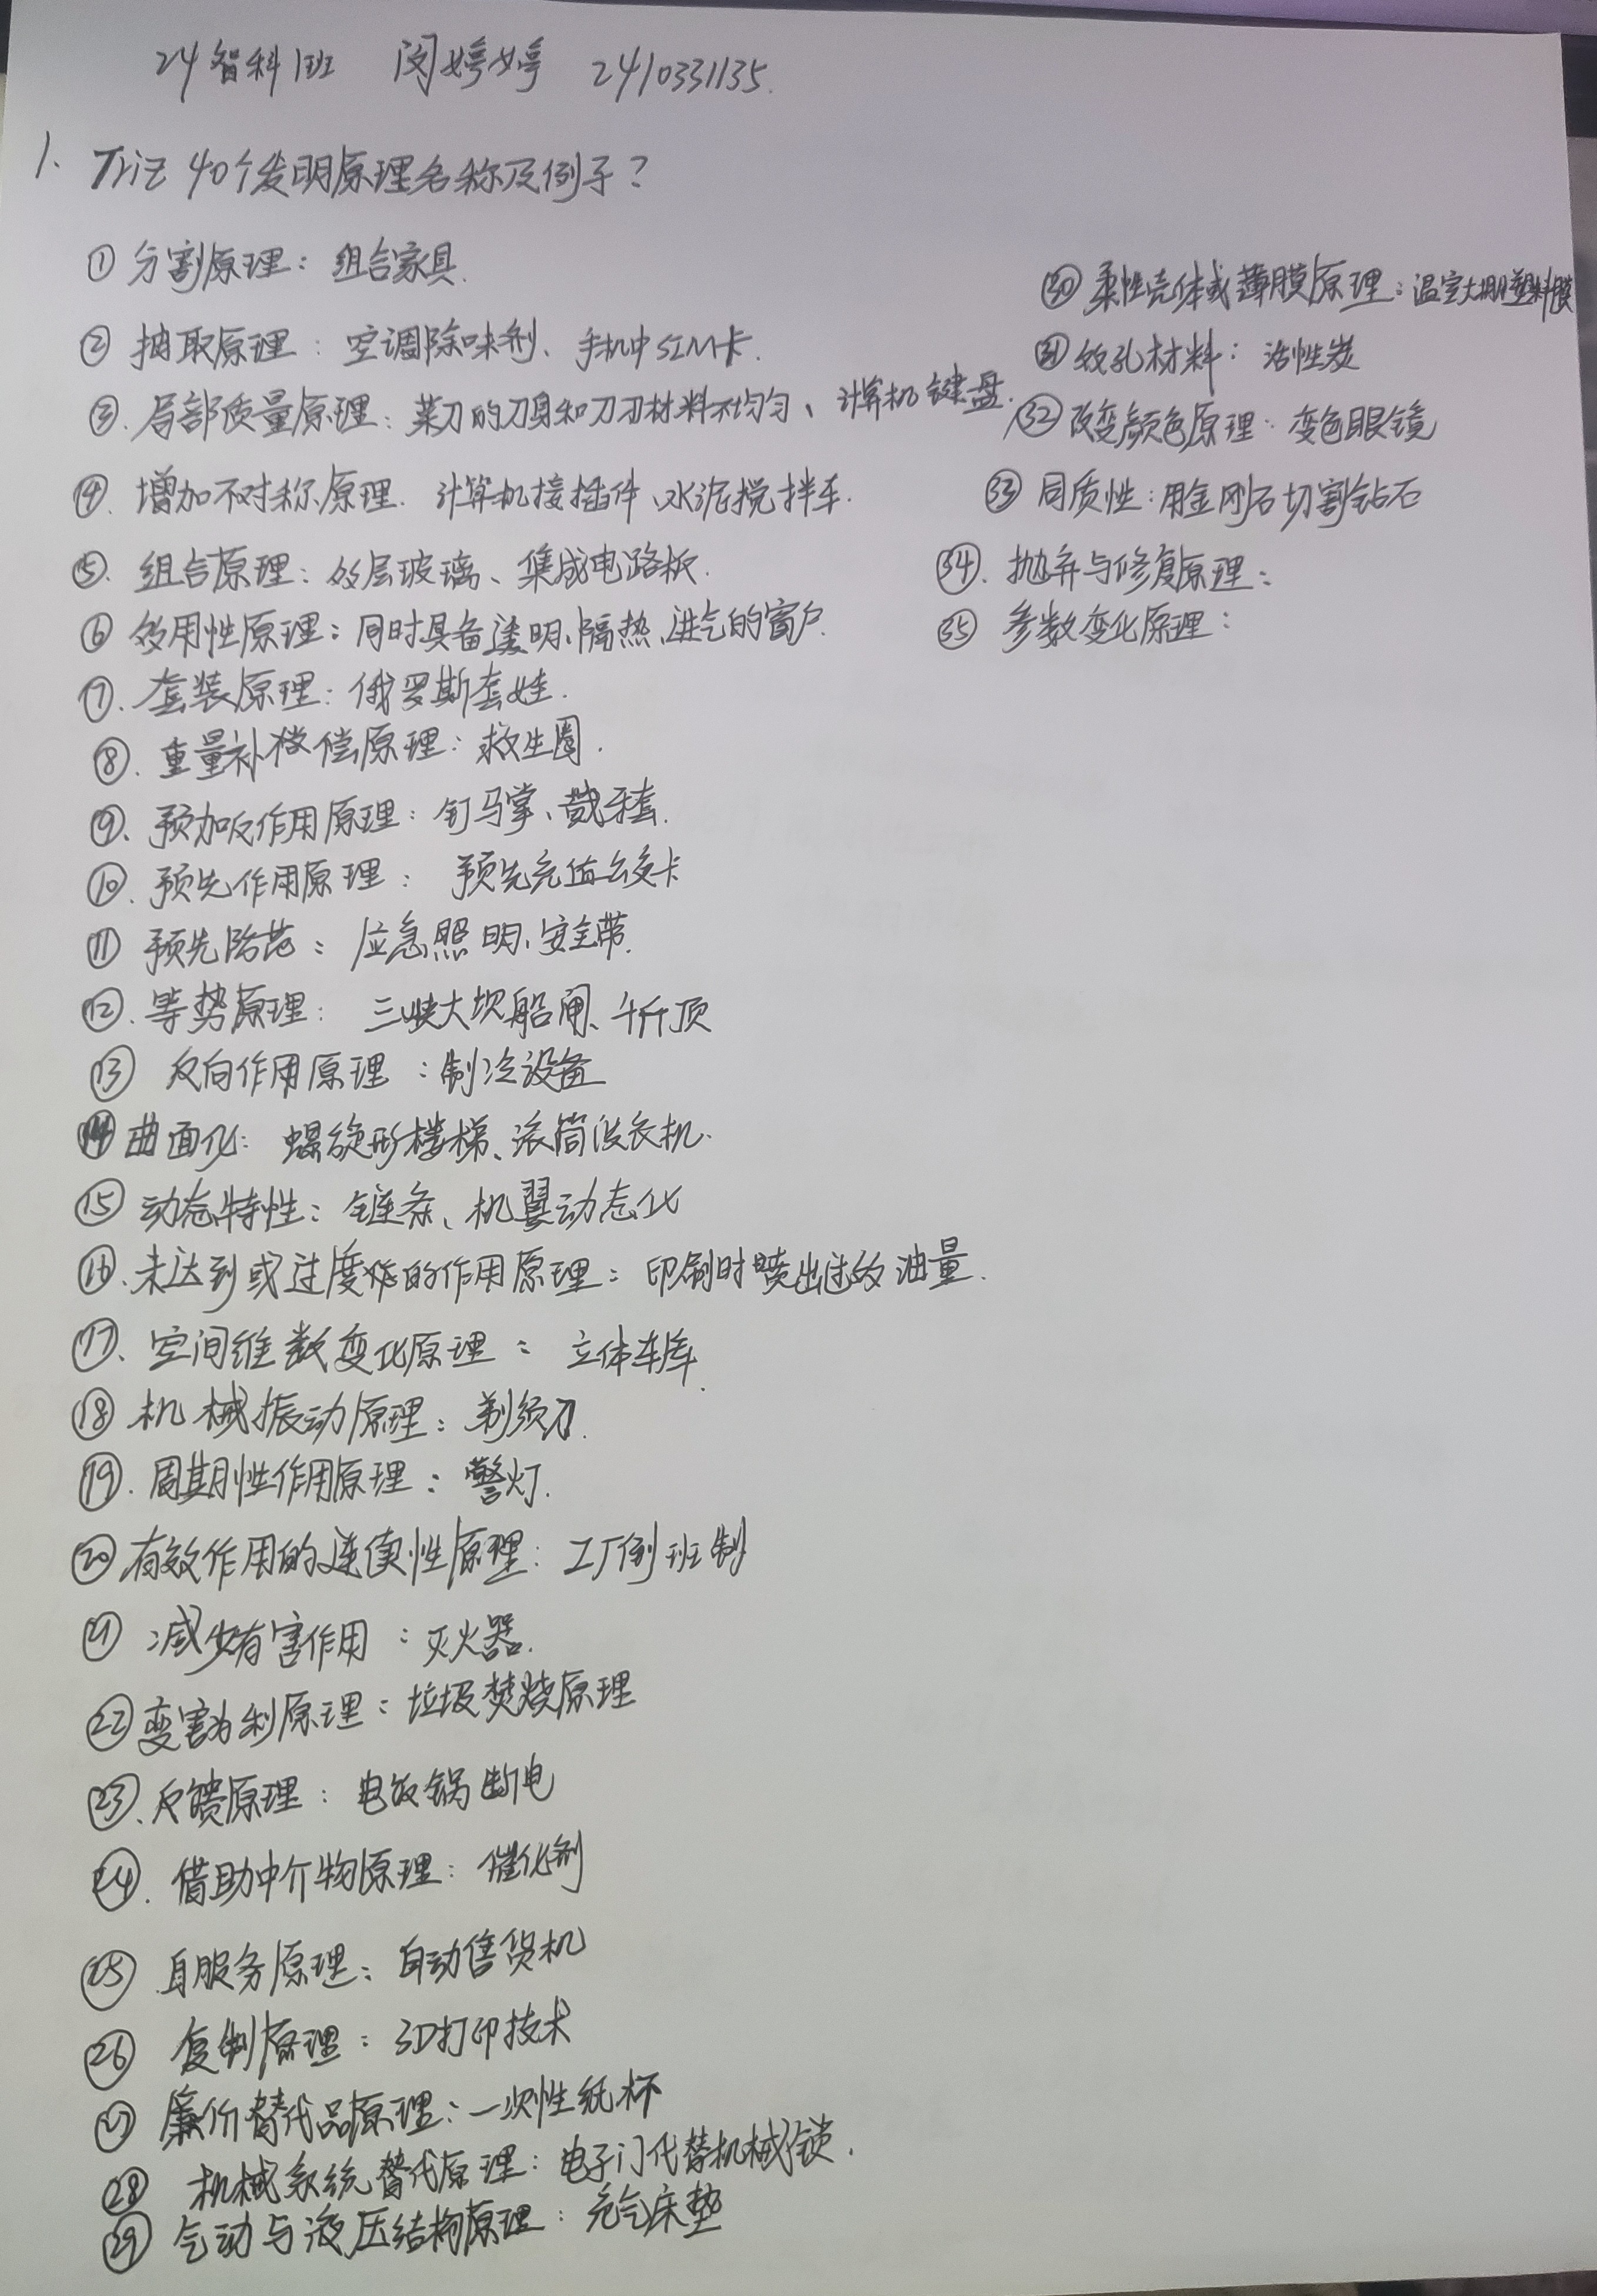 24智科1班 闵婷婷 2410331135.
1. Triz 40个发明原理名称及例子?
① 分割原理: 组合家具.
② 抽取原理: 空调除味剂、手机中SIM卡.
③. 局部质量原理: 菜刀的刀身和刀刃材料不均匀、计算机键盘.
④. 增加不对称原理. 计算机接插件、水泥搅拌车.
⑤. 组合原理: 多层玻璃、集成电路板.
⑥ 多用性原理: 同时具备透明、隔热、进气的窗户.
⑦. 套装原理: 俄罗斯套娃.
⑧. 重量补偿原理: 救生圈.
⑨. 预加反作用原理: 钉马掌、戴牙套.
⑩. 预先作用原理: 预先充值公交卡
⑪ 预先防范: 应急照明、安全带.
⑫. 等势原理: 三峡大坝船闸、千斤顶
⑬ 反向作用原理: 制冷设备
⑭ 曲面化: 螺旋形楼梯、滚筒洗衣机.
⑮ 动态特性: 链条、机翼动态化
⑯. 未达到或过度的作用原理: 印刷时喷出过多油量.
⑰. 空间维数变化原理: 立体车库.
⑱ 机械振动原理: 剃须刀.
⑲. 周期性作用原理: 警灯.
⑳ 有效作用的连续性原理: 工厂倒班制
㉑ 减少有害作用: 灭火器.
㉒ 变害为利原理: 垃圾焚烧原理
㉓. 反馈原理: 电饭锅断电
㉔. 借助中介物原理: 催化剂
㉕ 自服务原理: 自动售货机
㉖ 复制原理: 3D打印技术
㉗ 廉价替代品原理: 一次性纸杯
㉘ 机械系统替代原理: 电子门代替机械锁.
㉙ 气动与液压结构原理: 充气床垫
㉚ 柔性壳体或薄膜原理: 温室大棚塑料膜
㉛ 多孔材料: 活性炭
㉜ 改变颜色原理: 变色眼镜
㉝ 同质性: 用金刚石切割钻石
㉞. 抛弃与修复原理:
㉟ 参数变化原理: